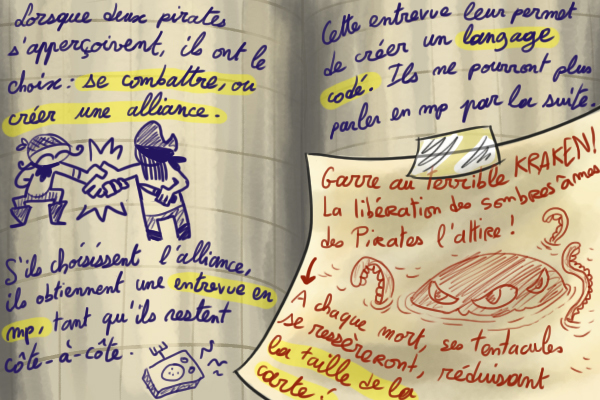 Lorsque deux pirates
s'apperçoivent, ils ont le
choix : se combattre, ou
créer une alliance.
S'ils choisissent l'alliance,
ils obtiennent une entrevue en
mp, tant qu'ils restent
côte-à-côte.
Cette entrevue leur permet
de créer un langage
codé. Ils ne pourront plus
parler en mp par la suite.
Garre au terrible KRAKEN!
La libération des sombres âmes
des Pirates l'attire !
A chaque mort, ses tentacules
se ressèreront, réduisant
la taille de la
carte !